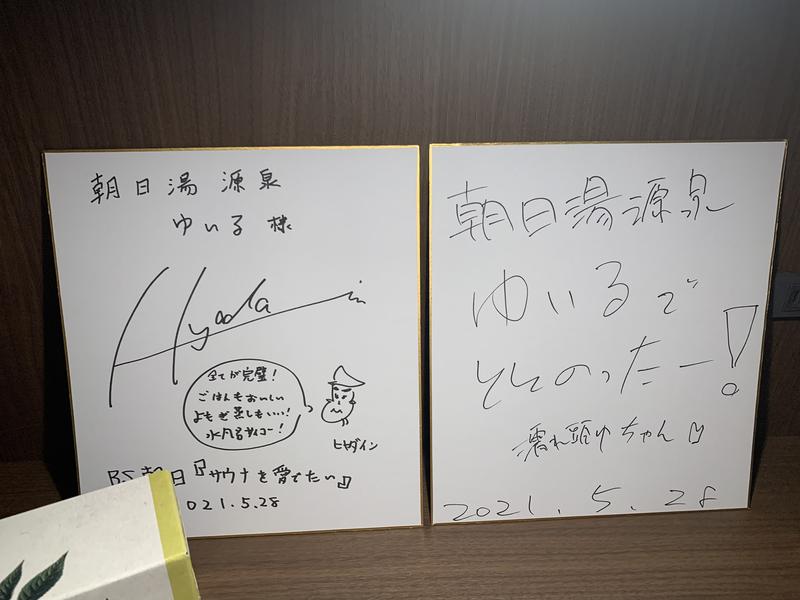 朝日湯源泉
ゆいる様
Hyadain
全てが完璧!
ごはんもおいしい
よもぎ蒸しもいい!
水風呂サイコー!
ヒャダイン
BS朝日『サウナを愛でたい』
021.5.28
朝日湯源泉
ゆいるで
ととのったー!
濡れ頭巾ちゃん
2021.5.28